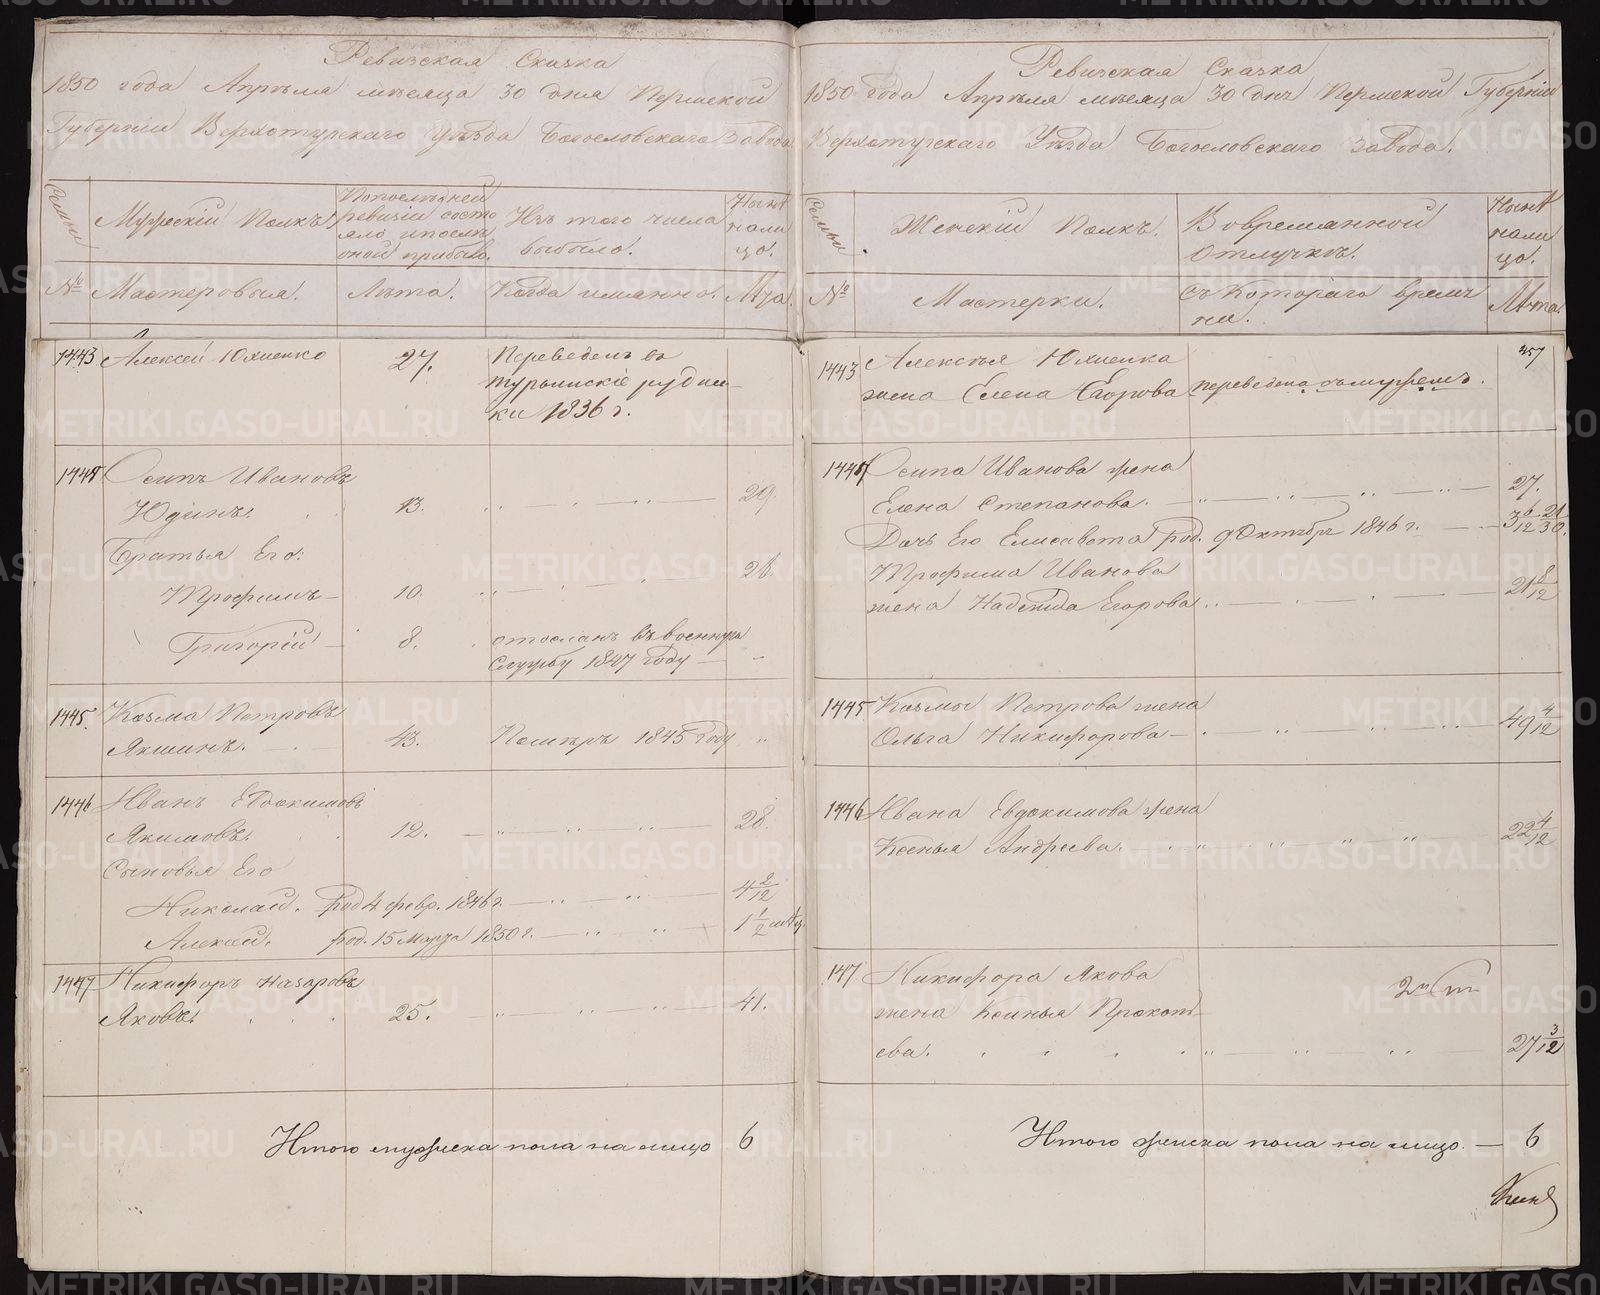 Ревизская Сказка
1850 года Апрѣля мѣсяца 30 дня Пермской
Губерніи Верхотурскаго Уѣзда Богословскаго Завода
Семьи
Мужескій Полкъ.
По послѣдней ревизіи состояло и послѣ оной прибыло.
Изъ того числа выбыло.
Нынѣ на лицо.
№ Мастеровыя. Лѣта. Когда имянно. Лѣта.
1443 Алексей Юхненко 27. Переведенъ въ
турьинскіе рудни-
ки 1836 г.
1444 Осипъ Ивановъ
Юдинъ. 13. 29.
Братья Его:
Трофимъ 10. 26.
Григорій 8. отосланъ въ военную
службу 1847 году
1445 Козма Петровъ
Якшинъ. 43. Померъ 1845 году
1446 Иванъ Евдокимовъ
Якимовъ. 12. 28.
Сыновья Его
Николай. род. 4 февр. 1846 г. 4 2/12
Алексей. род. 15 Марта 1850 г. 1 1/2 мѣц.
1447 Никифоръ Назаровъ
Яковъ. 25. 41.
Итого мужеска пола на лицо 6
Ревизская Сказка
1850 года Апрѣля мѣсяца 30 дня Пермской Губерніи
Верхотурскаго Уѣзда Богословскаго Завода.
Семьи
Женскій Полкъ.
Во временной отлучкѣ.
Нынѣ на лицо.
№ Мастерки. Съ котораго времени. Лѣта.
357
1443 Алексѣя Юхненка
жена Елена Егорова переведена съ мужемъ.
1444 Осипа Иванова жена
Елена Степанова. 27.
Дочь Его Елисавета род. 9 Октября 1846 г. 3 6/12 21/30.
Трофима Иванова
жена Надежда Егорова 21 8/12
1445 Козмы Петрова жена
Ольга Никифорова 49 4/12
1446 Ивана Евдокимова жена
Ксенья Андреева. 22 4/12
147 Никифора Якова
жена Ксинья Прокопь-
ева. 27 3/12
Итого женска пола на лицо. — 6
METRIKI.GASO-URAL.RU